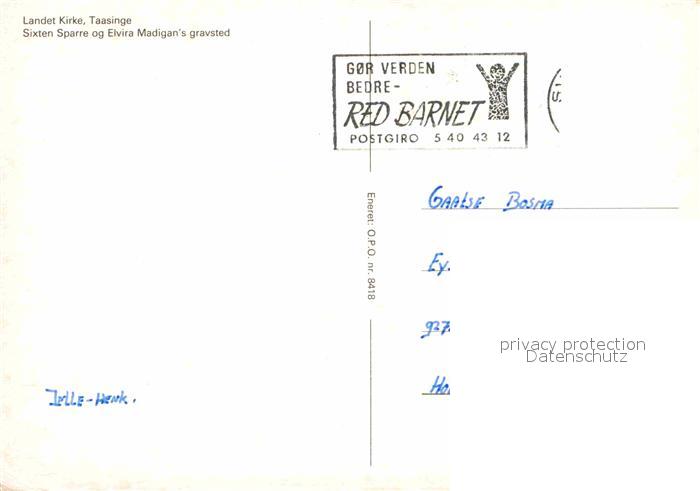 Landet Kirke, Taasinge
Sixten Sparre og Elvira Madigan's gravsted
GØR VERDEN
BEDRE-
RED BARNET
POSTGIRO 5 40 43 12
Eneret: O.P.O. nr. 8418
GAATSE BOSMA
Ey.
937.
Ho
privacy protection
Datenschutz
JELLE-HENK.